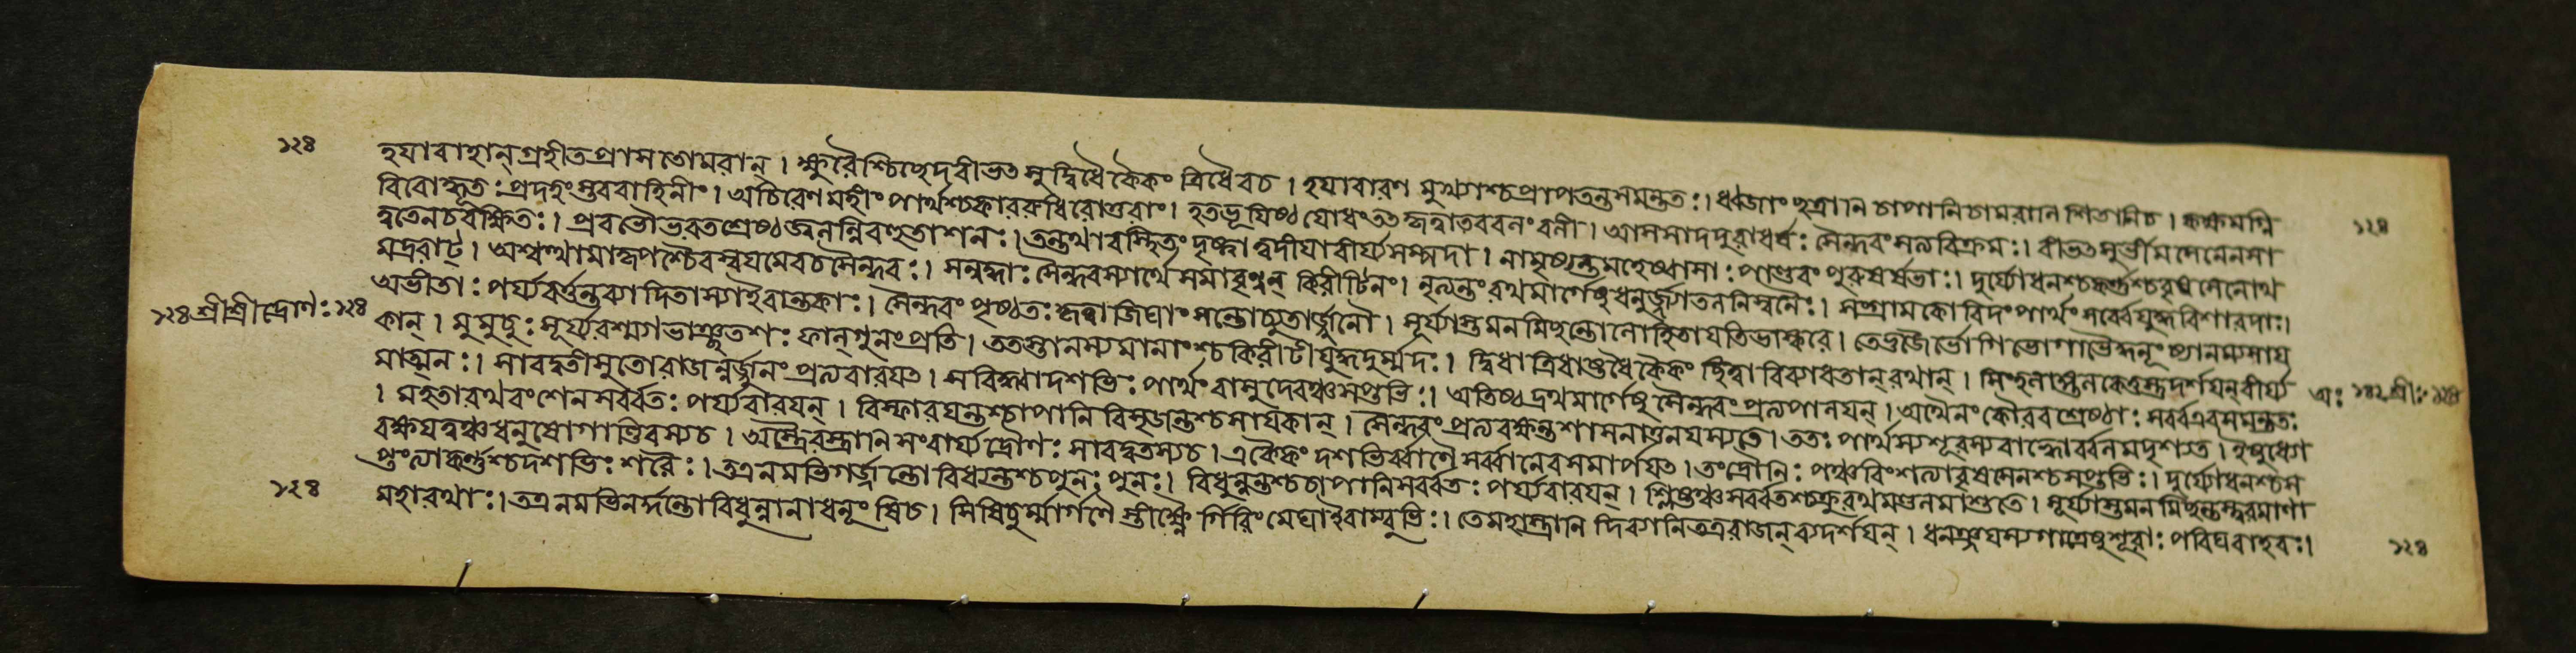 ১২৪
হযাবাহান্ গ্রহীতপ্রাসতোমরান্। ক্ষুরৈশ্চিচ্ছেদ বীভৎসুর্দ্বিধৈকৈকং ত্রিধৈবচ। হযাবারণ মুখ্যাশ্চপ্রাপতন্তসমন্ততঃ। ধ্বজাংছত্রাণি চাপানি চামরাণি শিতানিচ। কক্ষমগ্নি
বিবোদ্ধূতঃ প্রদহংস্তববাহিনীং। অচিরেণ মহীং পার্থশ্চকাররুধিরোত্তরাং। হতভূযিষ্ঠ যোধংতৎ কৃত্বাতববলং বলী। আসসাদদুরাধর্ষঃ সৈন্ধবংসত্যবিক্রমঃ। বীভৎসুর্ভীমসেনেনসা
১২৪
ত্বতেনচরক্ষিতঃ। প্রবভৌভরতশ্রেষ্ঠজ্বলন্নিবহুতাশনঃ। তন্তথাবস্থিতং দৃষ্ট্বা ত্বদীযাবীর্য্যসম্পদা। নামৃষ্যন্তমহেষ্বাসাঃ পাণ্ডবং পুরুষর্ষভাঃ। দুর্য্যোধনশ্চকর্ণ্ণশ্চবৃষসেনোথ
মদ্ররাট্। অশ্বত্থামাকৃপশ্চৈবস্বযমেবচসৈন্ধবঃ। সন্নদ্ধাঃ সৈন্ধবস্যার্থে সমাবৃণ্বন্ কিরীটিনং। নৃত্যন্তং রথমার্গেষুধনুর্জ্জ্যাতলনিস্বনৈঃ। সংগ্রামকোবিদং পার্থং সর্ব্বেযুদ্ধবিশারদাঃ।
অভীতাঃ পর্য্যবর্ত্তন্তব্যাদিতাস্যাইবান্তকাঃ। সৈন্ধবং পৃষ্ঠতঃ কৃত্বা জিঘাংসন্তোচ্যুতার্জ্জুনৌ। সূর্য্যাস্তমনমিচ্ছন্তোলোহিতাযতিভাস্করে। তেভুজৈর্ভোগিভোগাভৈর্দ্ধনূংষ্যানম্যসায
১২৪ শ্রীশ্রীদ্রোণঃ ১২৪
কান্। মুমুচুঃ সূর্য্যরশ্ম্যাভাঞ্ছতশঃ ফাল্গুনংপ্রতি। ততস্তানস্যমানাংশ্চকিরীটীযুদ্ধদুর্ম্মদঃ। দ্বিধাত্রিধাষ্টধৈকৈকং ছিত্বা বিব্যাধতান্ রথান্। সিংহলাঙ্গূলকেতুস্তুদর্শযন্বীর্য্য
মাত্মনঃ। শারদ্বতীসুতোরাজন্নর্জ্জুনং প্রত্যবারযৎ। সবিদ্ধ্বাদশভিঃ পার্থং বাসুদেবঞ্চসপ্তভিঃ। অতিষ্ঠদ্রথমার্গেষু সৈন্ধবং প্রত্যপালযন্। অথৈনং কৌরবশ্রেষ্ঠাঃ সর্ব্বএবসমন্ততঃ
। মহতারথবংশেনসর্ব্বতঃ পর্য্যবারযন্। বিস্ফারযন্তশ্চাপানি বিসৃজন্তশ্চসাযকান্। সৈন্ধবং প্রত্যরক্ষন্তশাসনাত্তনযস্যতে। ততঃ পার্থস্যশূরস্যবাহ্বোর্ব্বলমদৃশ্যত। ইষূণামক্ষ
রক্ষযত্বঞ্চধনুষোগাণ্ডিবস্যচ। অস্ত্রৈরস্ত্রাণি সংবার্য্যদ্রৌণেঃ শারদ্বতস্যচ। একৈকং দশভির্ব্বাণৈঃ সর্ব্বানেবসমার্পযৎ। তংদ্রৌণিঃ পঞ্চবিংশত্যাবৃষসেনশ্চসপ্তভিঃ। দুর্য্যোধনশ্চস
প্তংত্যাকর্ণ্ণশ্চদশভিঃ শরৈঃ। তএনমভিগর্জ্জন্তোবিধ্যন্তশ্চপুনঃ পুনঃ। বিধুন্বন্তশ্চচাপানিসর্ব্বতঃ পর্য্যবারযন্। শ্লিষ্টঞ্চসর্ব্বতশ্চক্রুরথমণ্ডলমাশুতে। সূর্য্যাস্তমনমিচ্ছন্তস্ত্বরমাণা
১২৪
মহারথাঃ। তএনমভিনর্দ্দন্তোবিধুন্বানাধনূংষিচ। সিষিচুর্ম্মার্গণৈস্তীক্ষ্ণৈর্গিরিং মেঘাইবাম্বুভিঃ। তেমহাস্ত্রাণি দিব্যানিতত্ররাজন্ ব্যদর্শযন্। ধনঞ্জযস্যগাত্রেষুশূরাঃ পরিঘবাহবঃ।
১২৪